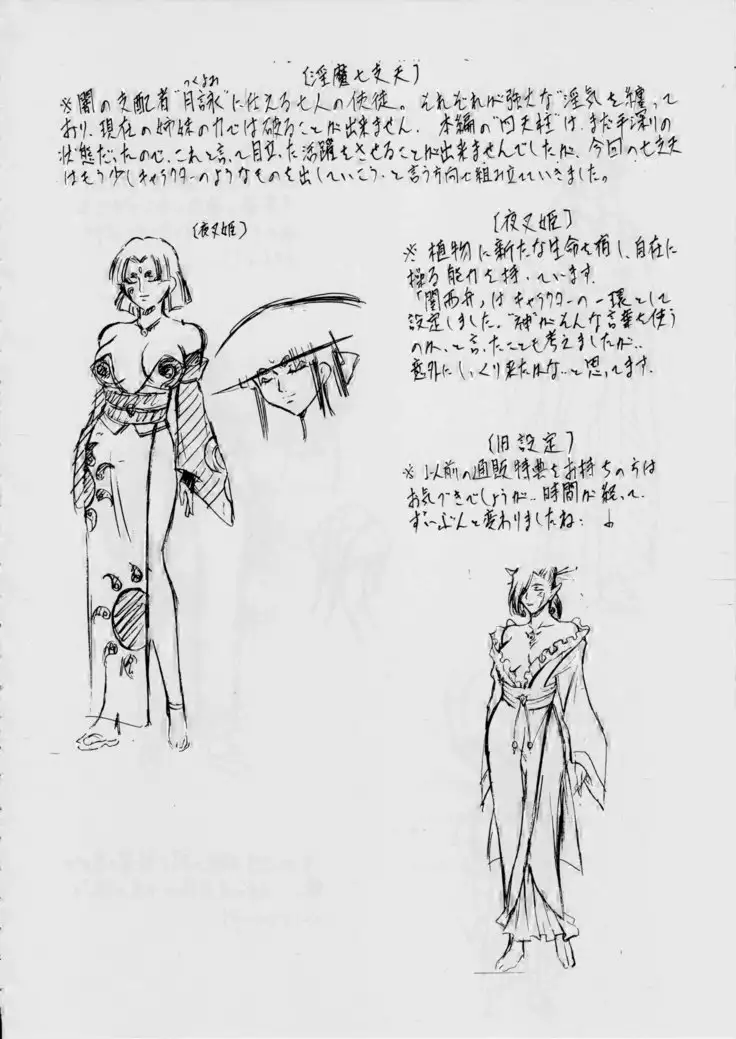 (淫魔七支天)
つくよみ
※闇の支配者"月詠"に仕える七人の使徒。それぞれが強大な"淫気"を纏って
おり、現在の姉妹の力では破ることが出来ません。本編の"四天柱"は、まだ手深りの
状態だったので、これと言って目立った活躍をさせることが出来ませんでしたが、今回の七支天
はもう少しキャラクターのようなものを出していこう、と言う方向で組み立てていきました。
(夜叉姫)
(夜叉姫)
※植物に新たな生命を宿し、自在に
操る能力を持っています。
「関西弁」はキャラクターの一環として
設定しました。"神"がそんな言葉を使う
のか、と言ったことも考えましたが..
意外にしっくり来たかな、と思ってます。
(旧設定)
※以前の通販特典をお持ちの方は
お気づきでしょうが..時間が経って、
ずいぶんと変わりましたね: